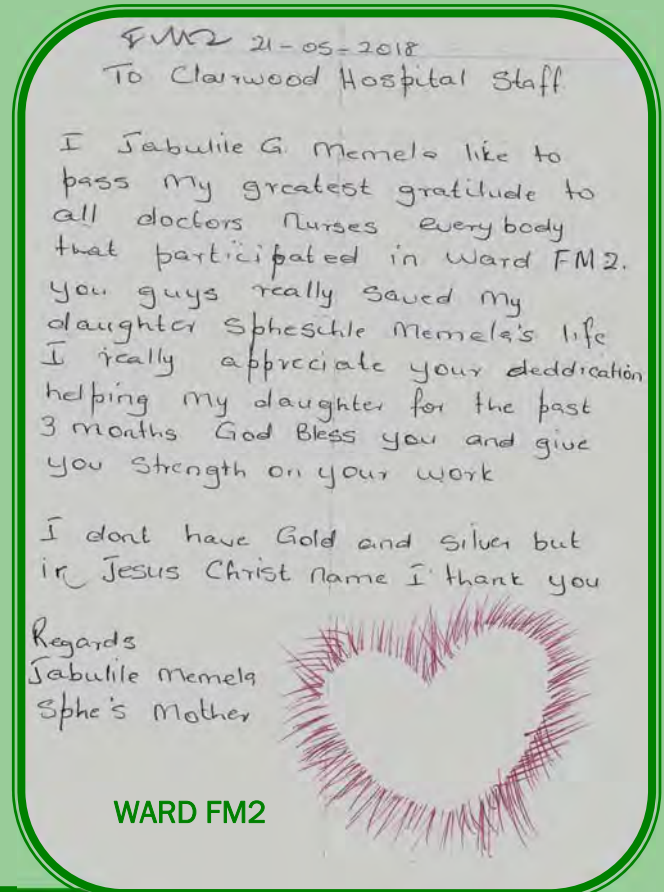 FM2 21-05-2018
To Clairwood Hospital Staff
I Jabulile G. Memela like to
pass my greatest gratitude to
all doctors nurses every body
that participated in Ward FM2.
you guys really saved my
daughter Sphesihle Memela's life
I really appreciate your deddication
helping my daughter for the past
3 months God Bless you and give
you strength on your work
I dont have Gold and silver but
in Jesus Christ name I thank you
Regards
Jabulile Memela
Sphe's Mother
WARD FM2